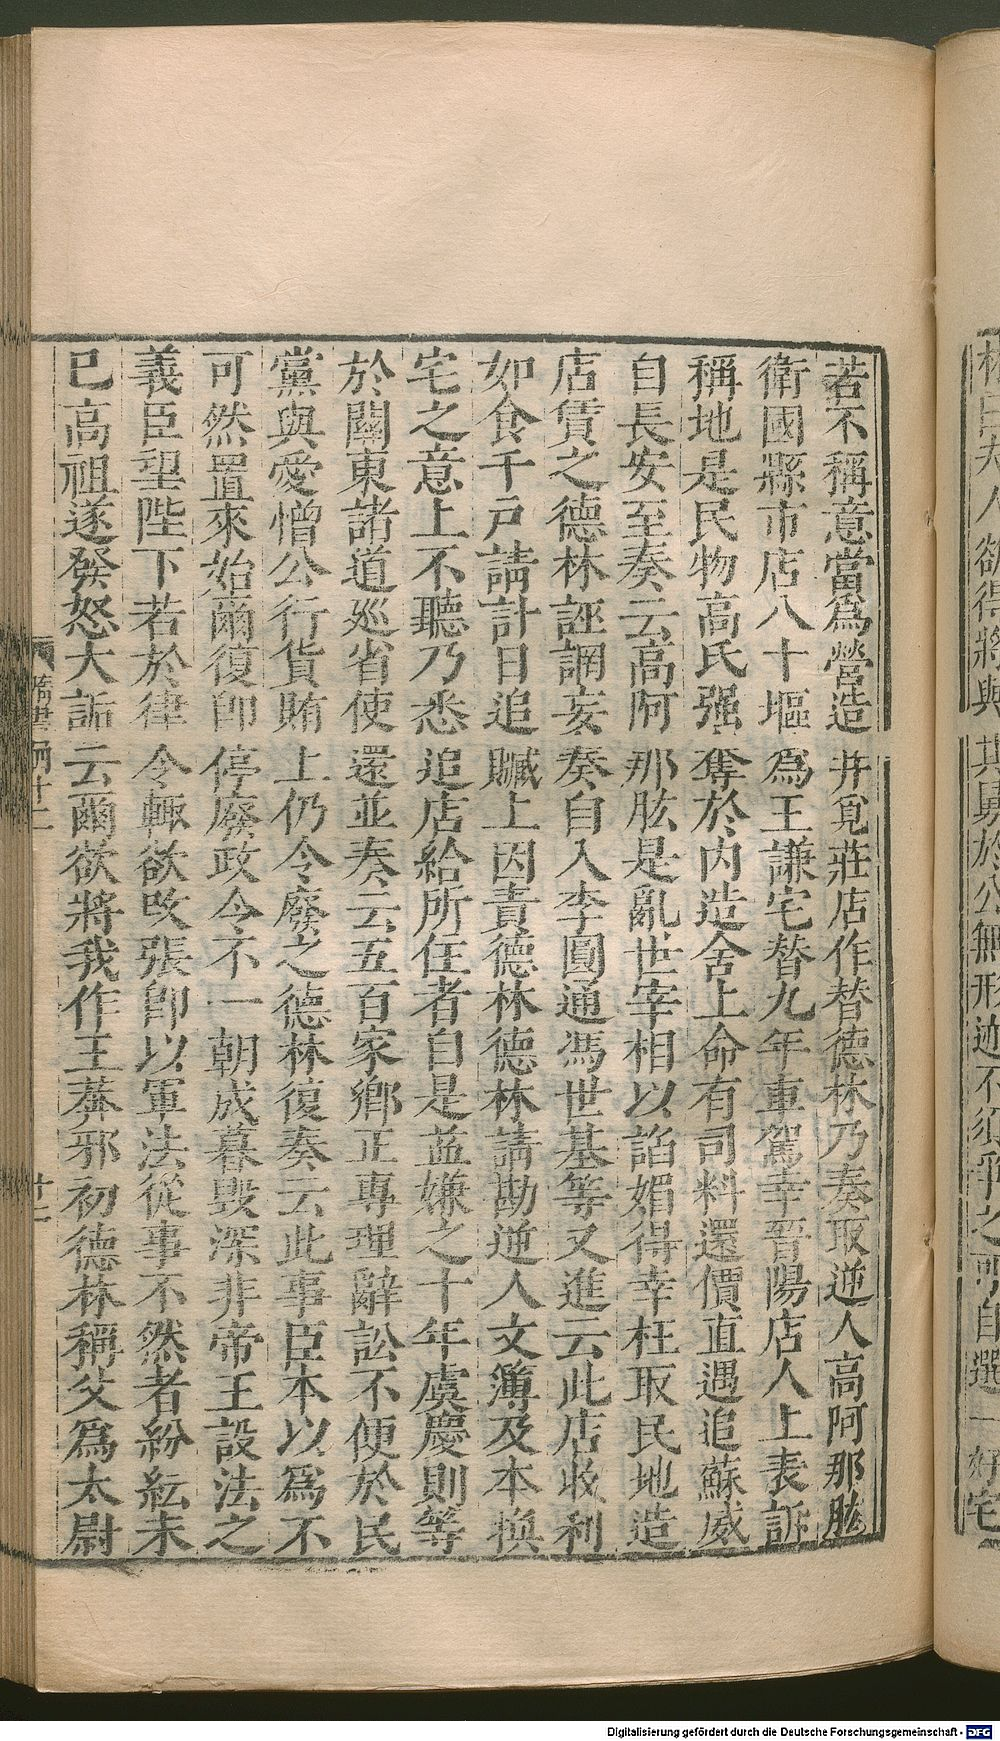 夫人欲得將與其舅於公無形迹不須爭之可自選一好宅
若不稱意當爲營造并覓莊店作替德林乃奏取逆人高阿那肱
衛國縣市店八十堰爲王謙宅替九年車駕幸晉陽店人上表訴
稱地是民物高氏强奪於内造舍上命有司料還價直遇追蘇威
自長安至奏云高阿那肱是亂世宰相以諂媚得幸枉取民地造
店賃之德林誣誷妄奏自入李圓通馮世基等又進云此店收利
如食千戸請計日追贓上因責德林德林請勘逆人文簿及本換
宅之意上不聽乃悉追店給所住者自是益嫌之十年虞慶則等
於關東諸道巡省使還並奏云五百家鄉正專理辭訟不便於民
黨與愛憎公行貨賄上仍令廢之德林復奏云此事臣本以爲不
可然置來始爾復即停廢政令不一朝成暮毁深非帝王設法之
義臣望陛下若於律令輒欲改張即以軍法從事不然者紛紜未
已高祖遂發怒大詬云爾欲將我作王莽邪初德林稱父爲太尉
隋書
Digitalisierung gefördert durch die Deutsche Forschungsgemeinschaft - DFG